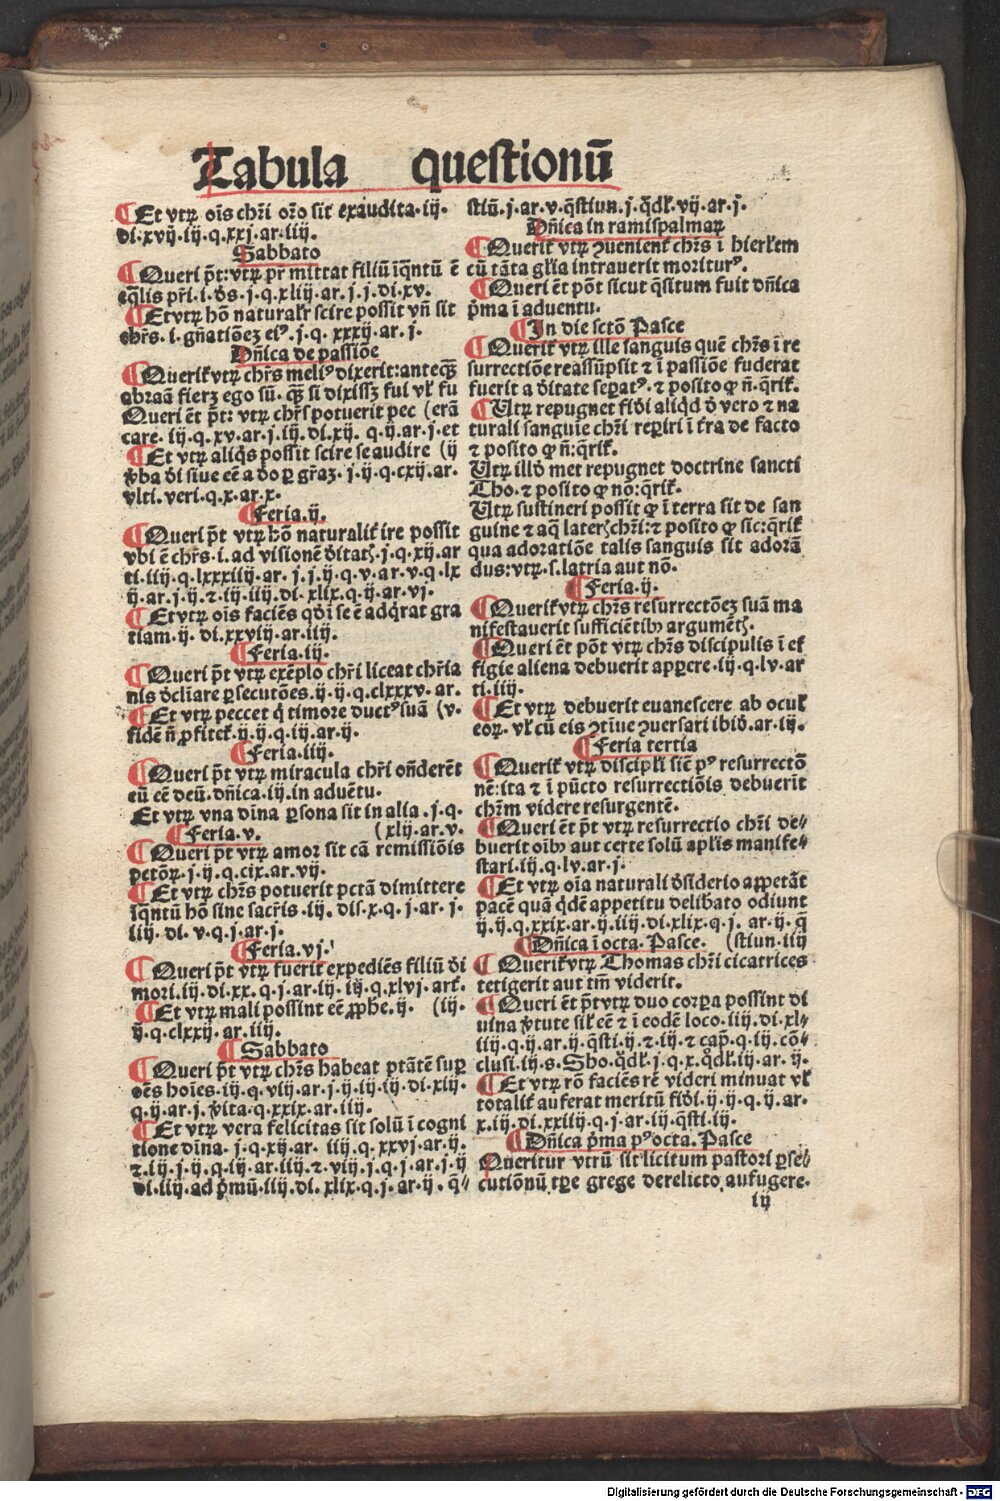 Tabula questionū
¶ Et vtrū oīs chr̄i or̄o sit exaudita.iij.
di.xvij.iij.q.xxj.ar.iiij.
Sabbato
¶ Queri p̄t: vtrū pr̄ mittat filiū īq̄ntū ē
eq̄lis pr̄i. i. d̄s. j. q. xliij. ar. j. j. di. xv.
¶ Et vtrū hō naturalr̄ scire possit vn̄ sit
chr̄s. i. gn̄atiōeꝫ ei⁹. j. q. xxxij. ar. j.
Dn̄ica de passiōe
¶ Querit̄ vtrū chr̄s meli⁹ dixerit: anteq̄ꝫ
abraā fierꝫ ego sū. q̄ꝫ si dixissꝫ fui vl̄ fu
Queri ēt p̄t: vtrū chr̄s potuerit pec (erā
care. iij. q. xv. ar. j. iij. di. xij. q. ij. ar. j. et
¶ Et vtrū aliq̄s possit scire se audire (ij
v̄ba dī siue eē a dō ꝑ gr̄aꝫ. j. ij. q. cxij. ar.
vlti. veri. q. x. ar. x.
¶ Feria. ij.
¶ Queri p̄t vtrū hō naturalit̄ ire possit
vbi ē chr̄s. i. ad visionē dītatꝭ. j. q. xij. ar
ti. iiij. q. lxxxiiij. ar. j. j. ij. q. v. ar. v. q. lx
ij. ar. j. ij. ⁊. iij. iiij. di. xlix. q. ij. ar. vj.
¶ Et vtrū oīs faciēs qd̄ ī se ē adq̄rat gra
tiam. ij. di. xxviij. ar. iiij.
¶ Feria. iij.
¶ Queri p̄t vtrū exēplo chr̄i liceat chr̄ia
nis d̄cliare ꝑsecutōes. ij. ij. q. clxxxv. ar.
¶ Et vtrū peccet q̄ timore duct⁹ suā (v.
fidē n̄ ꝓfitet̄. ij. ij. q. iij. ar. ij.
¶ Feria. iiij.
¶ Queri p̄t vtrū miracula chr̄i on̄derēt
eū eē deū. dn̄ica. iij. in aduētu.
Et vtrū vna dīna ꝑsona sit in alia. j. q.
¶ Feria. v. (xlij. ar. v.
¶ Queri p̄t vtrū amor sit cā remissiōis
petōꝝ. j. ij. q. cix. ar. vij.
¶ Et vtrū chr̄s potuerit pctā dimittere
īq̄ntū hō sine sacr̄is. iij. dis. x. q. j. ar. j.
iiij. di. v. q. j. ar. j.
¶ Feria. vj.
¶ Queri p̄t vtrū fuerit expediēs filiū dī
mori. iij. di. xx. q. j. ar. iij. iij. q. xlvj. art̄.
¶ Et vtrū mali possint eē ꝓphe. ij. (iij.
ij. q. clxxij. ar. iiij.
¶ Sabbato
¶ Queri p̄t vtrū chr̄s habeat ptātē suꝑ
oēs hoīes. iij. q. viij. ar. j. ij. iij. (ij. di. xiij.
q. ij. ar. j. v̄ita. q. xxix. ar. iiij.
¶ Et vtrū vera felicitas sit solū ī cogni
tione dīna. j. q. xij. ar. iiij. q. xxvj. ar. ij.
⁊. iij. j. ij. q. iij. ar. iiij. ⁊. viij. j. q. j. ar. j. ij
di. iiij. ad p̄mū. iiij. di. xlix. q. j. ar. ij. q̄-
stiū. j. ar. v. q̄stiun. j. q̄dl̄. vij. ar. j.
Dn̄ica in ramispalmaꝝ
¶ Querit̄ vtrū ꝯuenient̄ chr̄s ī hierl̄em
cū tāta gl̄ia intrauerit moritur⁹.
¶ Queri ēt pōt sicut q̄situm fuit dn̄ica
p̄ma ī aduentu.
¶ In die sctō Pasce
¶ Querit̄ vtrū ille sanguis quē chr̄s ī re
surrectiōe reassūpsit ⁊ ī passiōe fuderat
fuerit a dītate seꝑat⁹. ⁊ posito ꝙ n̄. q̄rit̄.
¶ Utrū repugnet fidī aliq̄d d̄ vero ⁊ na
turali sanguie chr̄i reꝑiri ī t̄ra de facto
⁊ posito ꝙ n̄: q̄rit̄.
Utrū illd̄ met repugnet doctrine sancti
Tho. ⁊ posito ꝙ nō: q̄rit̄.
Utrū sustineri possit ꝙ ī terra sit de san
guine ⁊ aq̄ laterꝭ chr̄i: ⁊ posito ꝙ sic: q̄rit̄
qua adoratiōe talis sanguis sit adorā
dus: vtrū. s. latria aut nō.
¶ Feria. ij.
¶ Querit̄ vtrū chr̄s resurrectōeꝫ suā ma
nifestauerit sufficiētibꝫ argumētꝭ.
¶ Queri ēt pōt vtrū chr̄s discipulis ī ef
figie aliena debuerit apꝑere. iij. q. lv. ar
ti. iiij.
¶ Et vtrū debuerit euanescere ab ocul̄
eoꝝ. vl̄ cū eis ꝯtīue ꝯuersari ibid̄. ar. iij.
¶ Feria tertia
¶ Querit̄ vtrū discipl̄i siē p⁹ resurrectō
nē: ita ⁊ ī pūcto resurrectiōis debuerit
chr̄m videre resurgentē.
¶ Queri ēt p̄t vtrū resurrectio chr̄i de-
buerit oibꝫ aut certe solū apl̄is manife-
stari. iij. q. lv. ar. j.
¶ Et vtrū oīa naturali d̄siderio appetāt
pacē quā q̄dē appetitu delibato odiunt
ij. ij. q. xxix. ar. ij. iiij. di. xlix. q. j. ar. ij. q̄
¶ Dn̄ica ī octa. Pasce. (stiun. iiij
¶ Querit̄ vtrū Thomas chr̄i cicatrices
tetigerit aut tm̄ viderit.
¶ Queri ēt p̄t vtrū duo corꝑa possint di
uina v̄tute sil̄ eē ⁊ ī eodē loco. iiij. di. xl-
iiij. q. ij. ar. ij. q̄sti. ij. ⁊. iij. ⁊ cap̄. q. iij. cō-
clusi. iij. s. Sho. q̄dl̄. j. q. x. q̄dl̄. iij. ar. ij.
¶ Et vtrū rō faciēs rē videri minuat vl̄
totalit̄ auferat meritū fidī. ij. ij. q. ij. ar.
x. iij. di. xxiiij. q. j. ar. iij. q̄sti. iij.
¶ Dn̄ica p̄ma p⁹ octa. Pasce
Queritur vtrū sit licitum pastori ꝑse-
cutiōnū tꝑe grege derelicto aufugere.
iij
Digitalisierung gefördert durch die Deutsche Forschungsgemeinschaft - DFG